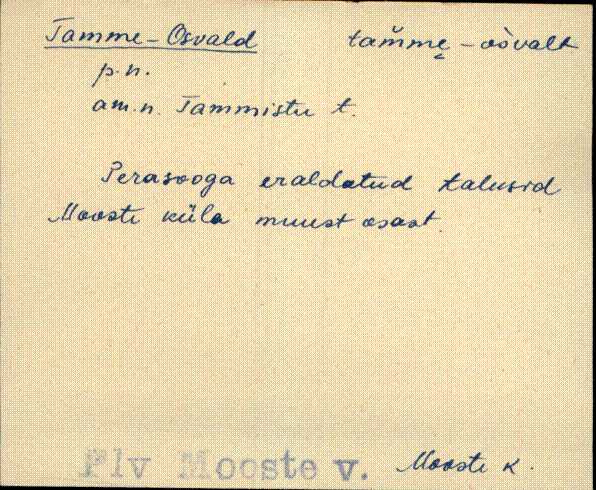 Tamme-Osvald tam̆mę - oòvalt
p.n.
am.n. Tammistu t.
Perasooga eraldatud talusid
Mooste küla muust osast.
Plv Mooste v. Mooste k.